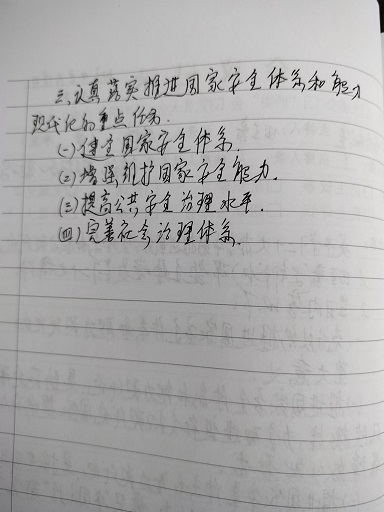 三、认真落实推进国家安全体系和能力
现代化的重点任务.
(一)健全国家安全体系.
(二)增强维护国家安全能力.
(三)提高公共安全治理水平.
(四)完善社会治理体系.